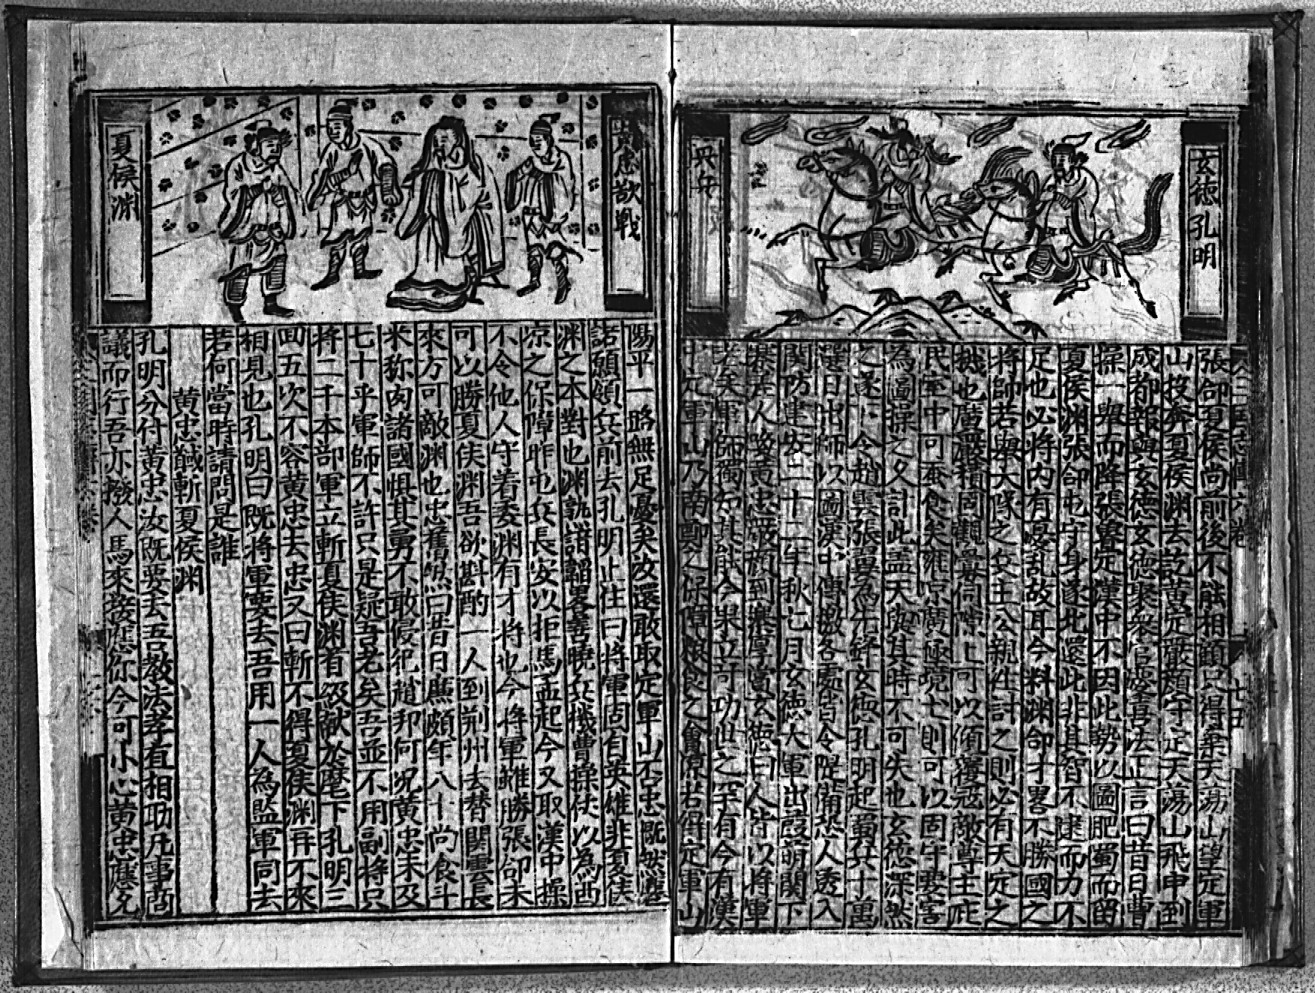 玄德孔明
兵年
張郃夏侯尚前後不能相顧只得棄天蕩山望定軍
山投奔夏侯淵去訖黃忠嚴顏守定天蕩山飛申到
成都報與玄德玄德聚衆官慶喜法正言曰昔日曹
操一舉而降張魯定漢中不因此勢以圖肥蜀而留
夏侯淵張郃屯守身遂北還此非其智不逮而力不
足也必將內有憂乱故耳今料淵郃才畧不勝國之
將帥若舉大隊之兵主公親往討之則必有天定之
機也廣農積固觀釁伺隙上可以傾覆寇敵尊主庇
民室中可蚕食矣雍凉廣極境土則可以固守要害
為圖操之久計此盖天與其時不可失也玄德深然
之遂令趙雲張翼為先鋒玄德孔明起蜀兵十萬
選日出師以圖漢中傳檄各處皆令隄備恐人透入
關防建安二十二年秋七月玄德大軍出葭萌關下
寨差人喚黃忠嚴顏到寨厚賞玄德曰人皆以將軍
老矣軍師獨知其能今果立可功世之罕有今有漢
中定軍山乃南鄭之保障粮食之會源若得定軍山
忠歇戰
夏侯淵
陽平一路無足憂矣汝還敢取定軍山不忠既然應
諾願領兵前去孔明止住曰將軍固有英雄非夏侯
淵之本對也淵熟諳韜畧善曉兵機曹操伏以為西
凉之保障昨屯兵長安以拒馬孟起今又取漢中操
不令他人守着委淵有才將也今將軍雖勝張郃未
可以勝夏侯淵吾欲斟酌一人到荊州去替關雲長
來方可敵淵也忠奮然曰昔日廉頗年八十尚食斗
米称肉諸國惧其勇不敢侵犯趙却何况黃忠未及
七十乎軍師不許只是疑吾老矣吾並不用副將只
將二千本部軍立斬夏侯淵首級献於麾下孔明三
囬五次不容黃忠去忠又曰斬不得夏侯淵再不來
相見也孔明曰既將軍要去吾用一人為監軍同去
若何當時請問是誰
黃忠馘斬夏侯淵
孔明分付黃忠汝既要去吾教法孝直相助凡事商
議而行吾亦撥人馬來接您你今可小心黃忠應允